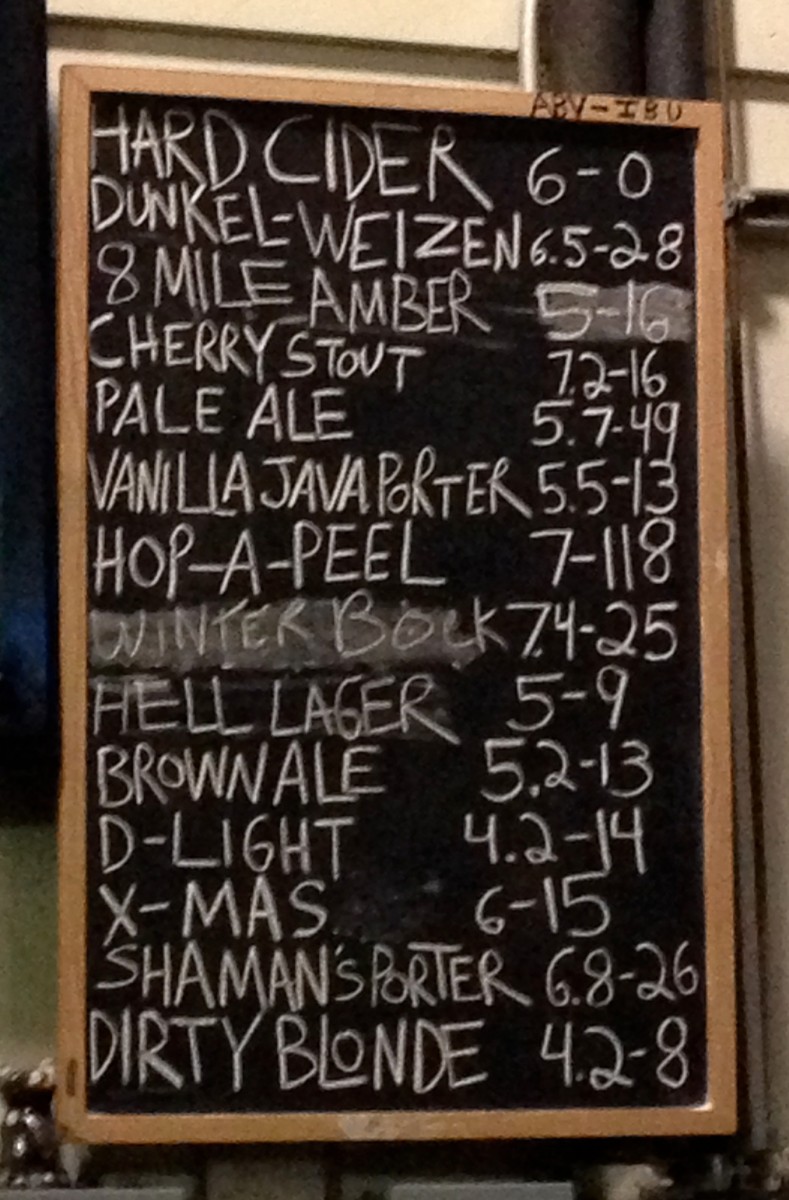 ABV-IBU
HARD CIDER 6-0
DUNKEL-WEIZEN 6.5-28
8 MILE AMBER 5-16
CHERRY STOUT 7.2-16
PALE ALE 5.7-49
VANILLA JAVA PORTER 5.5-13
HOP-A-PEEL 7-118
WINTER BOCK 7.4-25
HELL LAGER 5-9
BROWN ALE 5.2-13
D-LIGHT 4.2-14
X-MAS 6-15
SHAMAN'S PORTER 6.8-26
DIRTY BLONDE 4.2-8